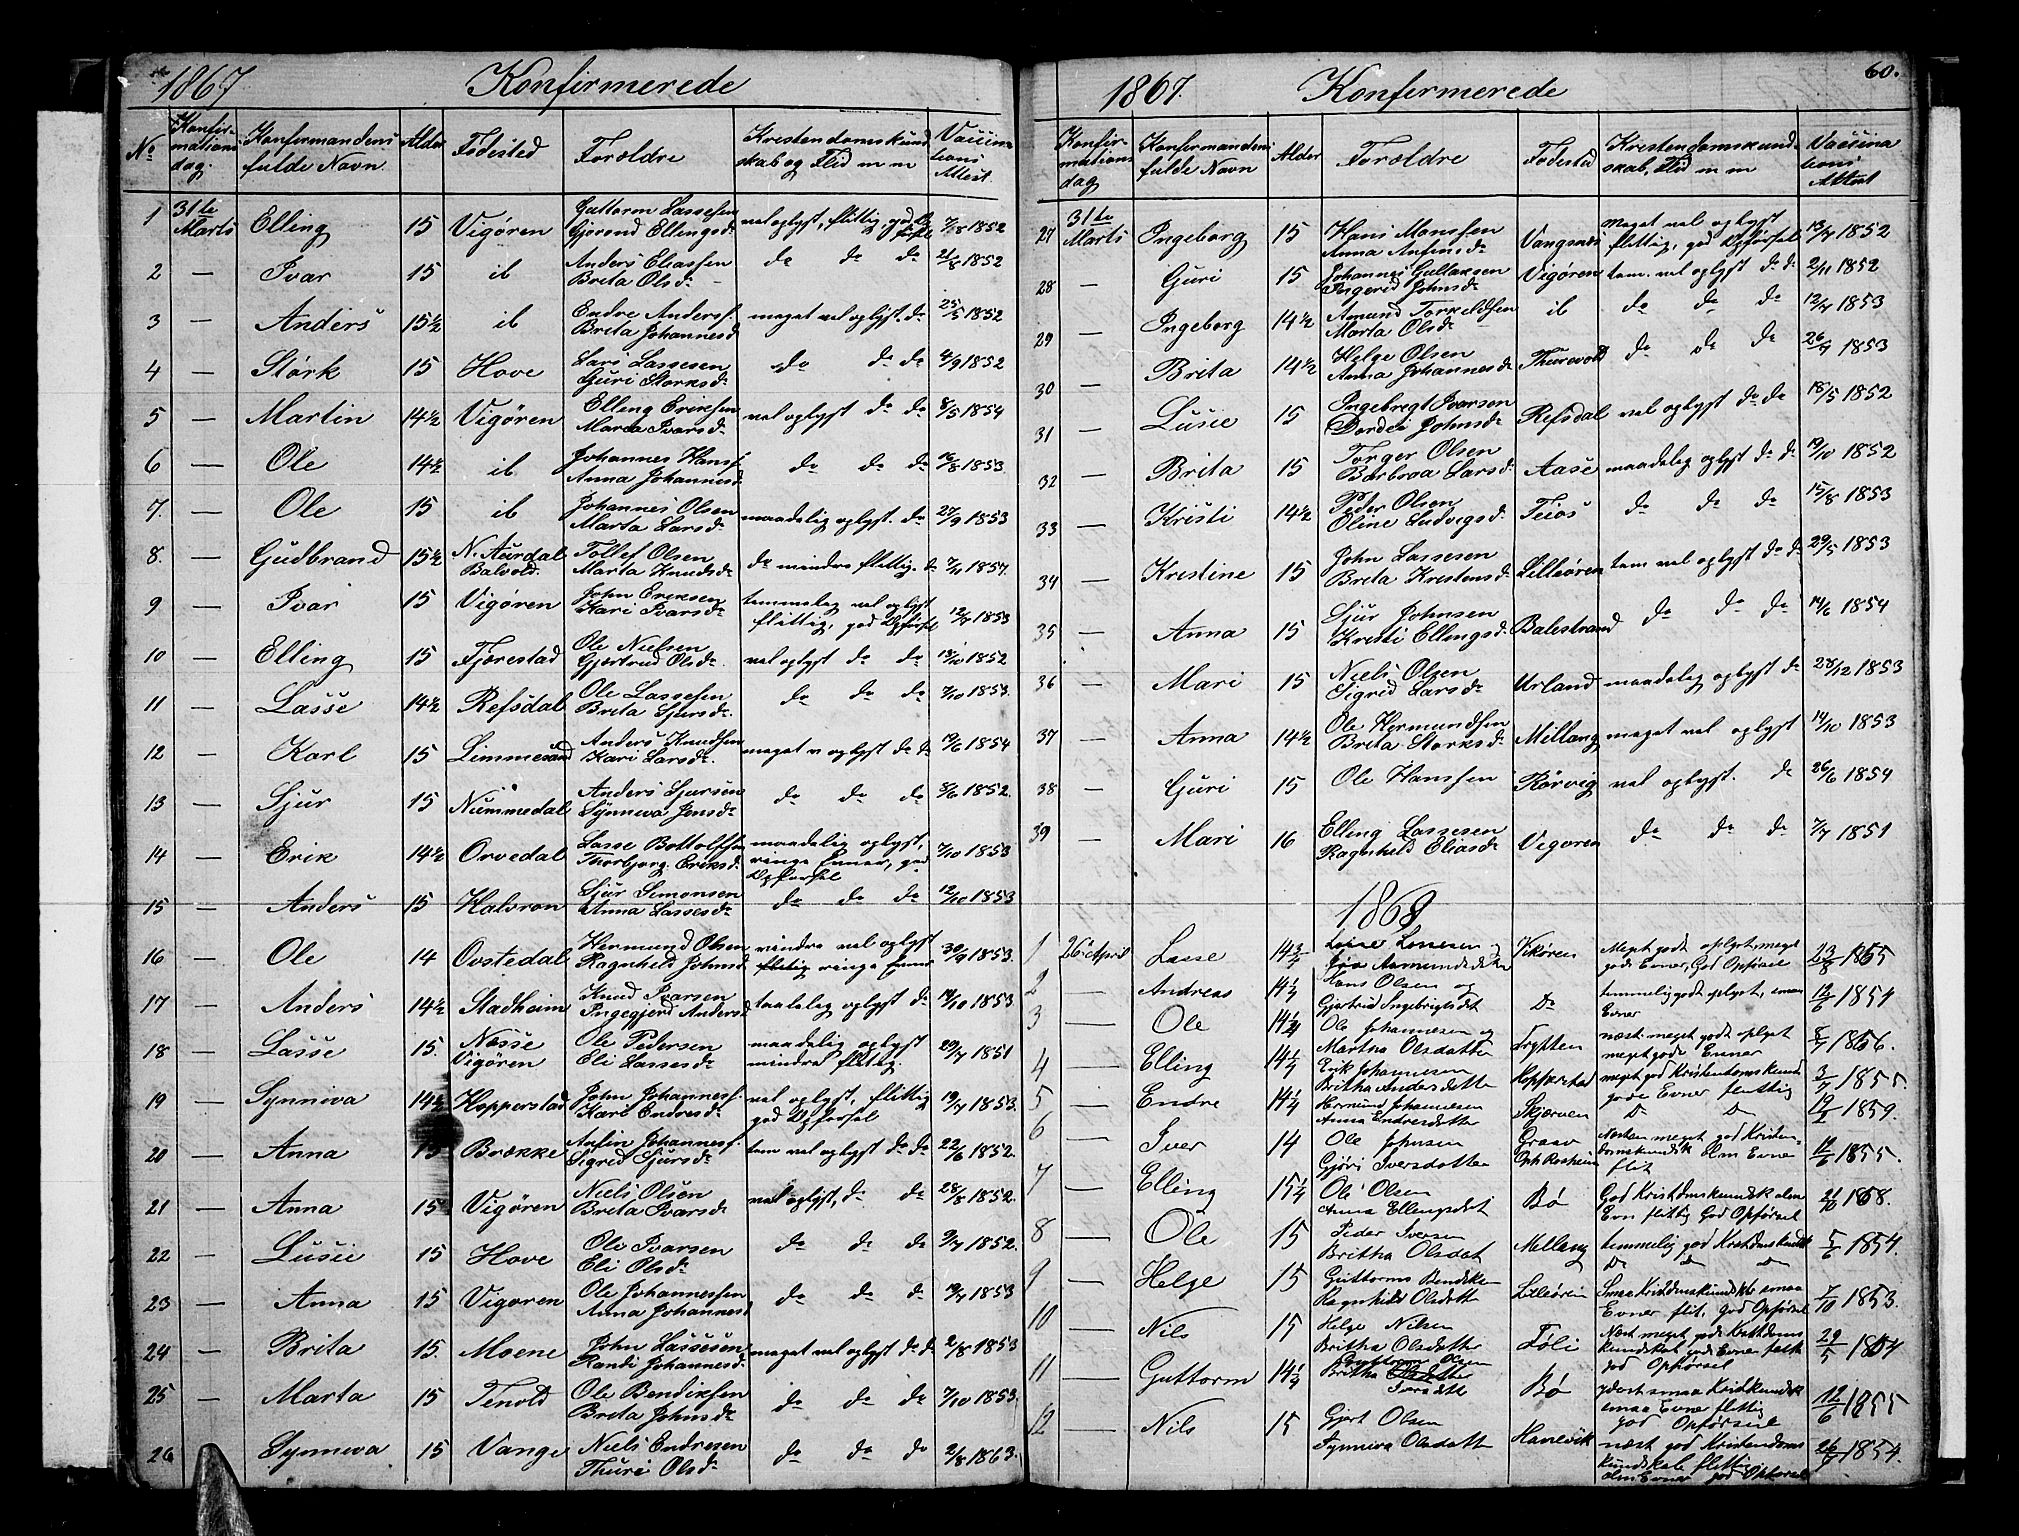 1867 Konfirmerede
No Konfirmations dag. Konfirmandens fulde Navn. Alder Fodested Forældre Kristendomskundskab og Flid m m Vaccinations Attest.
1 31te Marts Elling 15 Vigören Guttorm Lassesen Gjorond Ellingsdr vel oplyst, flittig, god Opførsel 7/8 1852
2 — Ivar 15 ib Anders Eliassen Brita Olsdr do do do 21/8 1852
3 — Anders 15½ ib Endre Anderss. Brita Johannesd meget vel oplyst. do 25/5 1852
4 — Störk 15 Hove Lars Lassesen Guri Storksdr do do do 4/9 1852
5 — Martin 14½ Vigören Elling Eriksen Marta Ivarsdr vel oplyst do do 8/5 1854
6 — Ole 14½ ib Johannes Hanss. Anna Johannesd do do do 16/8 1853.
7. — Ole 15 ib Johannes Olsen Marta Larsdr maadelig oplyst. do 27/9 1853
8. — Gudbrand 15½ N. Aurdal Balvold. Tollef Olsen Marta Knudsdr do mindre flittig. do 7/11 1854.
9 — Ivar 15 Vigören John Eriksen Kari Ivarsdr temmeleg vel oplyst flittig, god Opførsel 12/7 1853
10 — Elling 15 Fjærestad Ole Nielsen Gjertrud Olsdr vel oplyst do do 18/10 1852
11 — Lasse 14½ Refsdal Ole Lassesen Brita Sjursdr. do do do 7/10 1853.
12 — Karl 15 Limmesand Anders Knudsen Kari Larsdr. meget v oplyst do do 19/6 1854
13 — Sjur 15 Nummedal Anders Sjursen Synneva Jensdr do do do 3/6 1852.
14 — Erik 14½ Orvedal Lasse Bottolfsen Thorbjorg Eriksdr maadelig oplyst, ringe Evner, god Opførsel 7/10 1853
15 — Anders 15 Halvron Sjur Simonsen Anna Lassesdr do do do 12/10 1853
16 — Ole 14 Ovstedal Hermund Olsen Ragnhild Johnsd mindre vel oplyst flittig ringe Evner 30/9 1853.
17 — Anders 14½ Stadheim Knud Ivarsen Ingegjerd Andersd taaleleg oplyst do 14/10 1853
18 — Lasse 15. Næsse Vigören Ole Pedersen Eli Lassesdr maadelig oplyst mindre flittig. 29/7 1851
19 — Synniva 14½ Hopperstad John Johanness. Kari Endresdr vel oplyst, flittig god Opførsel 19/7 1853.
20 — Anna 15 Brække Anfin Johanness. Sigrid Sjursdr tem vel oplyst do do 22/6 1852.
21 — Anna 15 Vigören Niels Olsen Brita Ivarsdr vel oplyst, do do 28/8 1852.
22 — Lusie 15 Hove Ole Ivarsen Eli Olsdr do do do 9/7 1852.
23 — Anna 15 Vigören Ole Johannessen Anna Johannesd do do do 19/7 1853
24 — Brita 15. Moene John Lassesen Randi Johannesd. meget vel oplyst do do 2/8 1853
25 — Marta 15 Tenold Ole Bendiksen Brita Johnsdr do do do 7/10 1853.
26 — Synneva 15 Vange Niels Endresen Thuri Olsdr do do do 2/8 1863.
1867. Konfirmerede 60.
Konfirmations dag Konfirmandens fulde Navn Alder Forældre Fodested Kristendomskundskab, Flid m m Vaccinations Attest
27 31te Marts Ingeborg 15 Hans Monssen Anna Anfinsdr Vangsnæs meget vel oplyst flittig, god Opførsel 13/7 1852
28 — Guri 15 Johannes Gullaksen Ingerid Johnsdr Vigören tem. vel oplyst do do 2/11 1852
29 — Ingeborg 14½ Amund Torkeldsen Marta Olsdr ib do do do 12/7 1853
30 — Brita 14½ Helge Olsen Anna Johannesdr Thurevold do do do 26/7 1853
31 — Lusie 15 Ingebregt Ivarson Dordei Johnsdr Refsdal vel oplyst do do 18/5 1852
32 — Brita 15 Torger Olsen Barbroa Larsdr Aase maadeleg oplyst do do 19/10 1852
33 — Kristi 14½ Peder Olsen Oline Ludvigsdr Feios do do do 15/8 1853
34 — Kristine 15 John Lassesen Brita Kristensdr Lilleören tem vel oplyst do do 29/5 1853
35 — Anna 15 Sjur Johnsen Kristi Ellingsdr Balestrand do do do 14/6 1854
36 — Mari 15 Niels Olsen Sigrid Larsdr Urland maadeleg oplyst do 28/12 1853
37 — Anna 14½ Ole Hermundsen Brita Storksdr Millang meget vel oplyst 14/10 1853
38 — Guri 15 Ole Hanssen Rörvig vel oplyst. do 26/6 1854
39 — Mari 16 Elling Lassesen Ragnhild Eliasdr Vigoren do do do 7/7 1851
1868
1 26 April Lasse 14¾ Lasse Lassesen og Asmundsdatter Vikören Meget godt oplyst, meget gode Evner, God Opførsel 23/8 1855
2 — Andreas 14¼ Hans Olsen og Gjertrud Ingebrigtsdt Do temmelig godt oplyst, smaa Evner 12/6 1854
3 — Ole 14¼ Ole Johannesen og Martha Olsdatter Trytten næst meget godt oplyst meget gode Evner 8/7 1856.
4 — Elling 14¼ Erik Johannesen Britha Andersdatter Hopperstad meget god Kristendomskund gode Evner flittig 3/7 1855.
5 — Endre 14¼ Hermund Johannesen Anna Endresdatter Skjerven D D 19/2 1859.
6 — Iver 14 Ole Johnsen Gjøri Iversdatter Næsten meget god Kristendomskundsk alm Evner flit 12/6 1855.
7 — Elling 15¼ Ole Olsen Anna Ellingsdat Bø God Kristdmskundsk alm Evn flittig God Opførsel 21/10 1858.
8 — Ole 15 Peder Iversen Britha Olsdat Mellang temmelig god Kristdmskundsk D D D 5/6 1854.
9 — Helge 15 Guttorms Bendiksen Ragnhild Olsdatter Lilleören Smaa Kristdmskundskb smaa Evner flit. god Opførsel 7/10 1853.
10 — Nils 15 Helge Nilsen Britha Olsdatter Føli Næst meget gode Kristdoms kundskab gode Evner god Opførsel 29/5 1854
11 — Guttorm 14¼ Guttorm Olsen Britha Olsdatter Iversdtt Bø smaa Kristkundsk smaa Evner flittig god Opførsel 12/6 1855
12 — Nils 15 Gjert Olsen Synniva Olsdatter Hanevik næst god Kristendoms kundskab flittig alm Evner god Opførsel 26/7 1854.